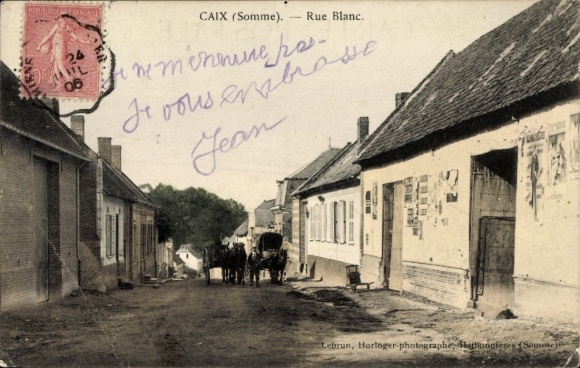 CAIX (Somme). — Rue Blanc.
24
06
je ne m'ennuie pas
Je vous embrasse
Jean
Lebrun, Horloger-photographe, Harbonnières (Somme)